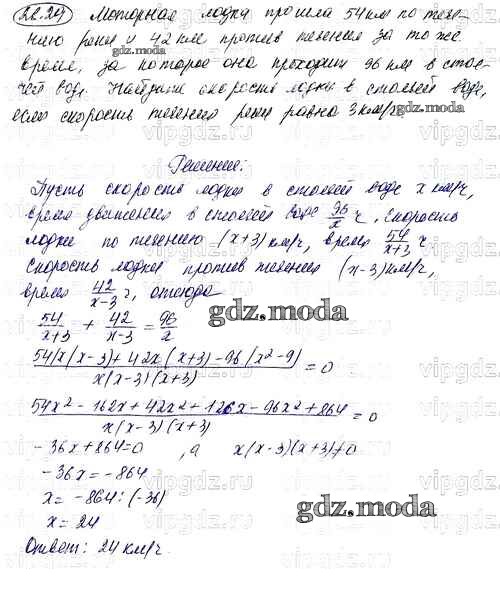 22.24 Моторная лодка прошла 54 км по тече-
нию реки и 42 км против течения за то же
время, за которое она проходит 96 км в стоя-
чей воде. Найдите скорость лодки в стоячей воде,
если скорость течения реки равна 3 км/ч.
gdz.moda
Решение:
Пусть скорость лодки в стоячей воде x км/ч,
время движения в стоячей воде 96/x ч, скорость
лодки по течению (x+3) км/ч, время 54/x+3 ч
Скорость лодки против течения (x-3) км/ч,
время 42/x-3 ч, отсюда
54/x+3 + 42/x-3 = 96/x
gdz.moda
54x(x-3)+42x(x+3)-96(x²-9)/x(x-3)(x+3) = 0
54x²-162x+42x²+126x-96x²+864/x(x-3)(x+3) = 0
-36x+864=0 , а x(x-3)(x+3)≠0
-36x=-864
x= -864:(-36)
gdz.moda
x= 24
Ответ: 24 км/ч.